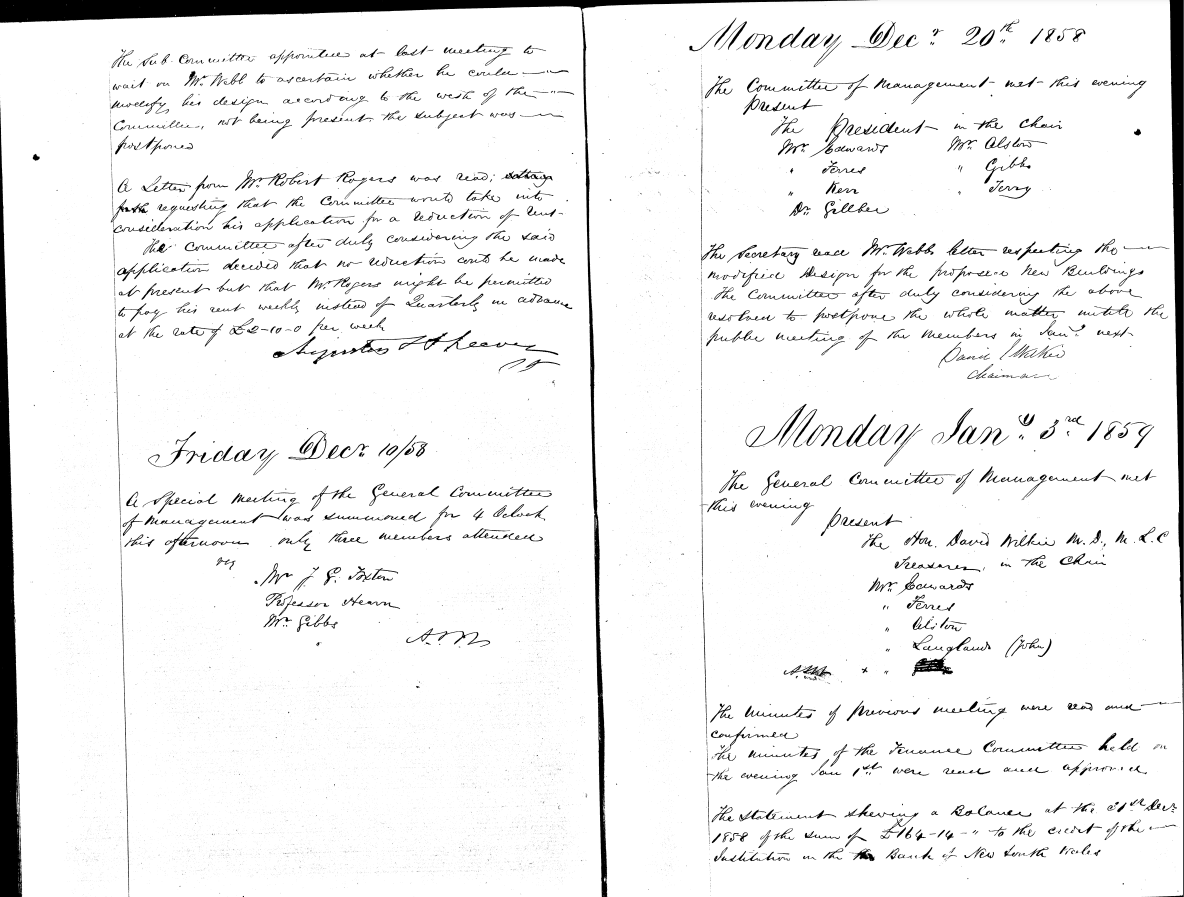 The Sub-Committee appointed at last meeting to
wait on Mr. Webb to ascertain whether he could
modify his design according to the wish of the
Committee, not being present the subject was
postponed
A Letter from Mr. Robert Rogers was read; setting
forth requesting that the Committee would take into
consideration his application for a reduction of rent
The Committee after duly considering the said
application decided that no reduction could be made
at present but that Mr. Rogers might be permitted
to pay his rent weekly instead of Quarterly in advance
at the rate of £2-10-0 per week
Friday Decr. 10/58
A Special Meeting of the General Committee
of Management was summoned for 4 Oclock
this afternoon only three members attended
viz
Mr J. G. Foxton
Professor Hearn
Mr. Gibbs
Monday Decr. 20th 1858
The Committee of Management met this evening
Present
The President in the Chair
Mr. Edwards Mr. Alston
" Ferres " Gibbs
" Kerr " Terry
Dr. Gillbee
The Secretary read Mr. Webbs letter respecting the
modified Design for the proposed New Buildings
The Committee after duly considering the above
resolved to postpone the whole matter untill the
public meeting of the members in Jany. next.
Chairman
Monday Jany. 3rd 1859
The General Committee of Management met
this evening
Present
The Hon. David Wilkie M.D., M.L.C
Treasurer, in the Chair
Mr. Edwards
" Ferres
" Alston
" Langlands (John)
+ "
The Minutes of previous meeting were read and
confirmed
The minutes of the Finance Committee held on
the evening Jan 1st were read and approved
The Statement shewing a Balance at the 31st Decr.
1858 of the sum of £164-14-" to the credit of the
Institution in the Bank of New South Wales